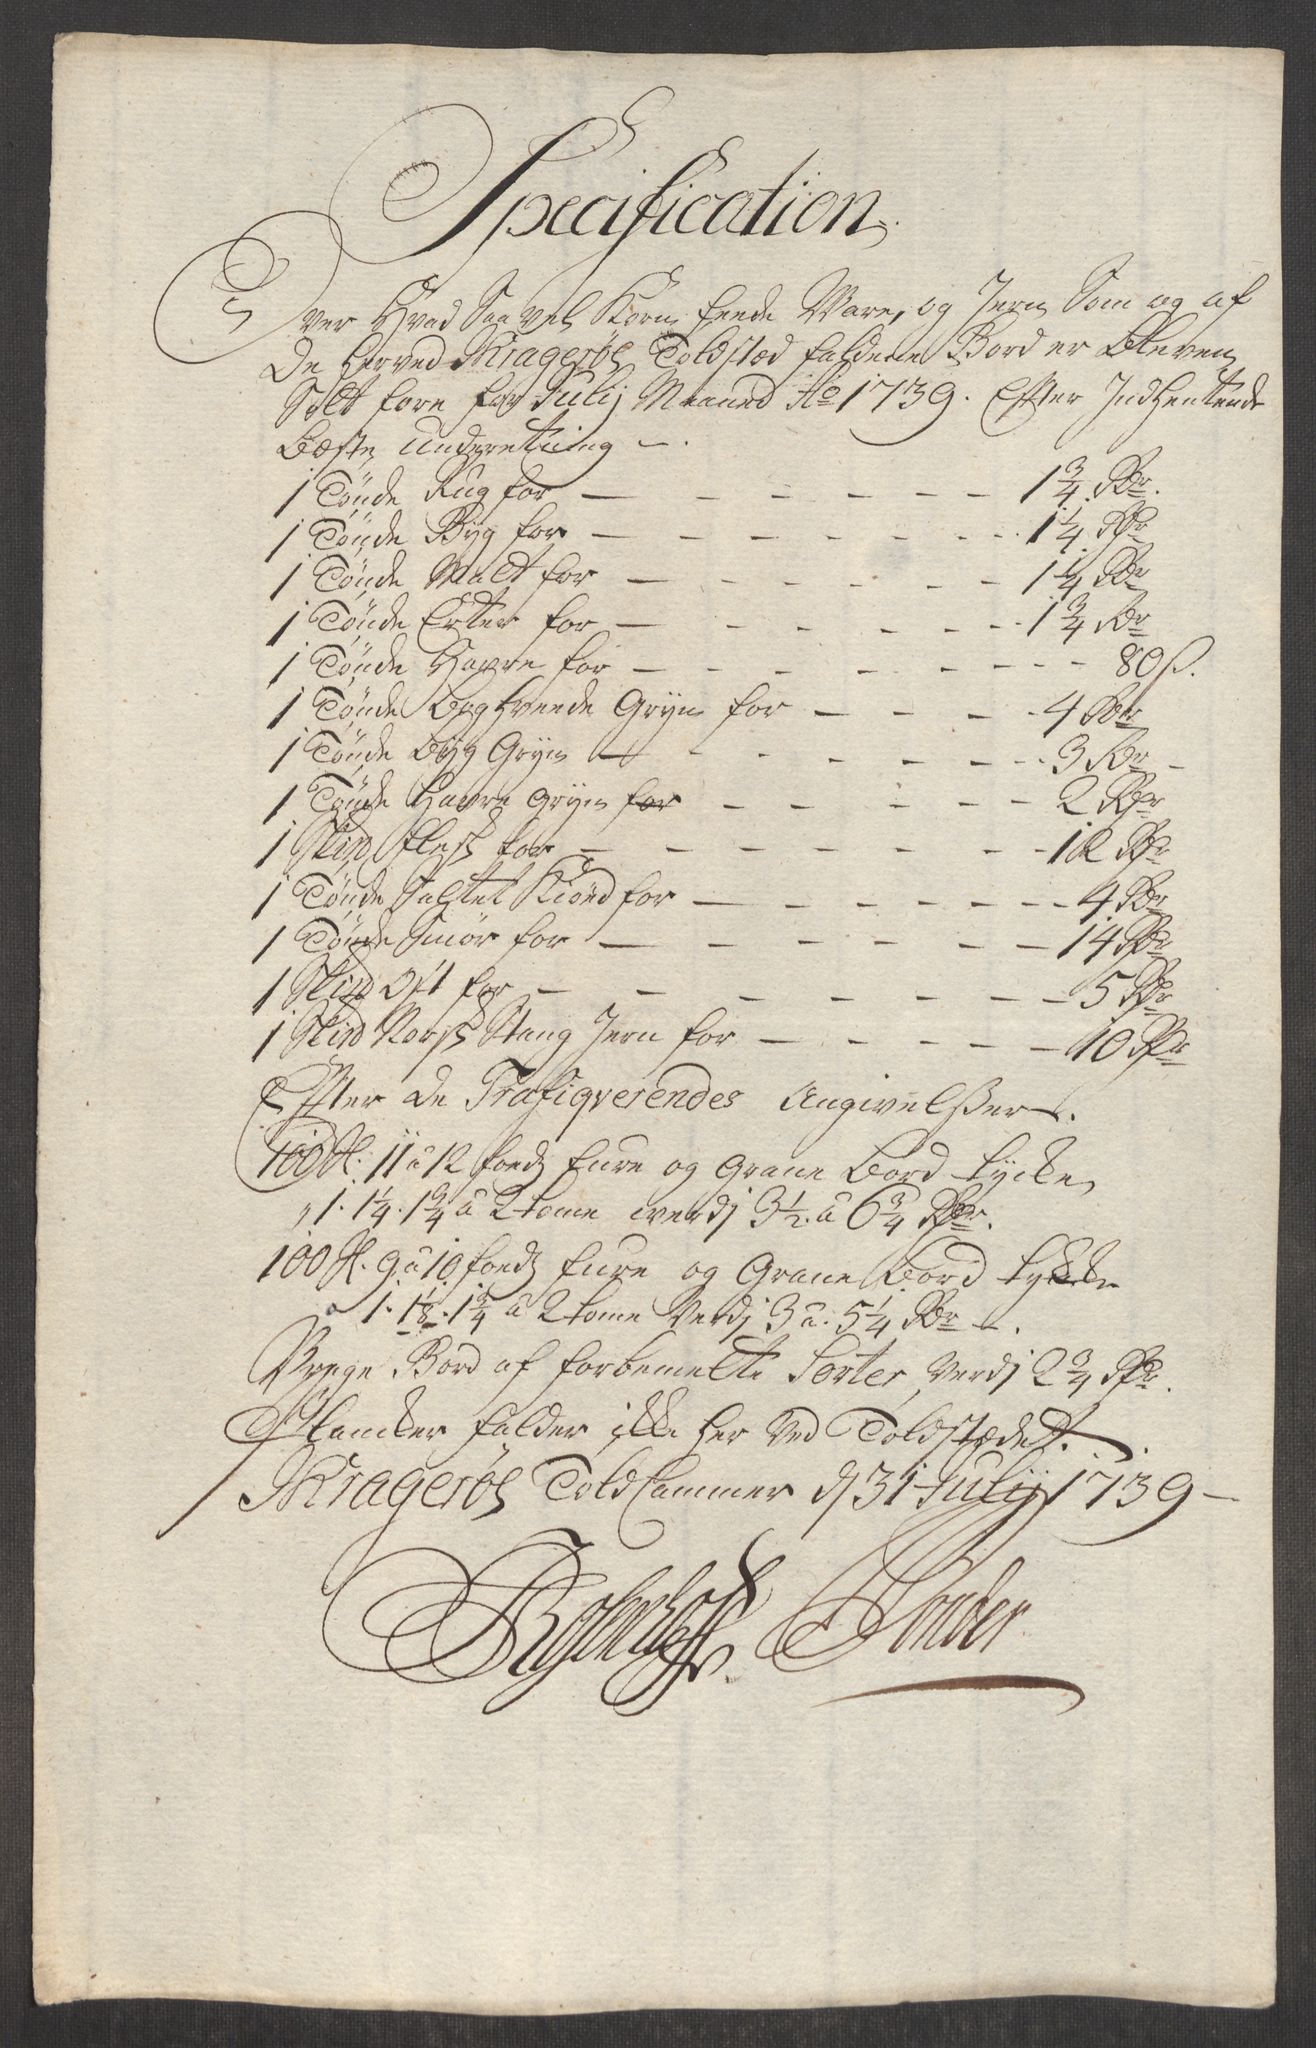 Specification
Over Hvad Saavel Korn feede Ware, og Jern Som og af
De herved Kragerøes Toldsted faldene Bord er bleven
Solt fore for Julij Maaned Ao 1739. Efter Indhentende
bæste Underetning —.
1 Tønde Rug for — — — — — — — 1 3/4 Rdr.
1 Tønde Byg for — — — — — — — 1 1/4 Rdr
1 Tønde Malt for — — — — — — 1 1/4 Rdr
1 Tønde Erter for — — — — — — 1 3/4 Rdr
1 Tønde Havre for — — — — — — — 80 ß.
1 Tønde Boghveede Gryn for — — — — 4 Rdr
1 Tønde Byg Gryn — — — — — — 3 Rdr —
1 Tønde Havre Gryn for — — — — — 2 Rdr
1 Skind flesk for — — — — — — — 12 Rdr
1 Tønde Saltet Kiöed for — — — — — — 4 Rdr
1 Tønde Smör for — — — — — — 14 Rdr
1 Skind Ost for — — — — — — 5 Rdr
1 Skind Norsk Stang Jern for — — — — 10 Rdr
Efter De Trafiqverendes Angivelsser —.
100 st. 11 a 12 foeds fure og Grane Bord tycke
1. 1 1/4. 1 3/4 a 2 tome werdj 3 1/2. a 6 3/4 Rdr.
100 st. 9 a 10 foeds fure og Grane Bord tykke
1. 1 1/8. 1 3/4 a 2 tome Verdj 3 a. 5 1/4 Rdr —.
Vrage Bord af forbemelte Sorter Verdj 2 3/4 Rdr.
Plancker falder ikke her ved Toldstedet.
Kragerøes Told Cammer d 31 Julij 1739 —